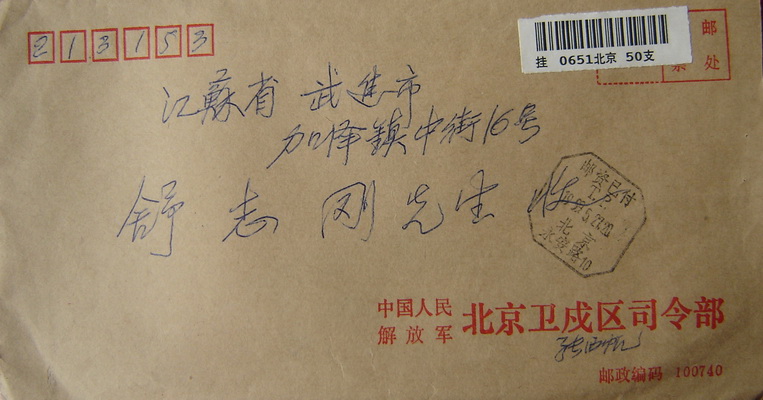 213153
挂 0651北京 50支
邮
票 处
江蘇省 武進市
加泽鎮中街16号
舒志刚先生 收
邮资已付
北京
中国人民
解放军 北京卫戍区司令部
邮政编码 100740